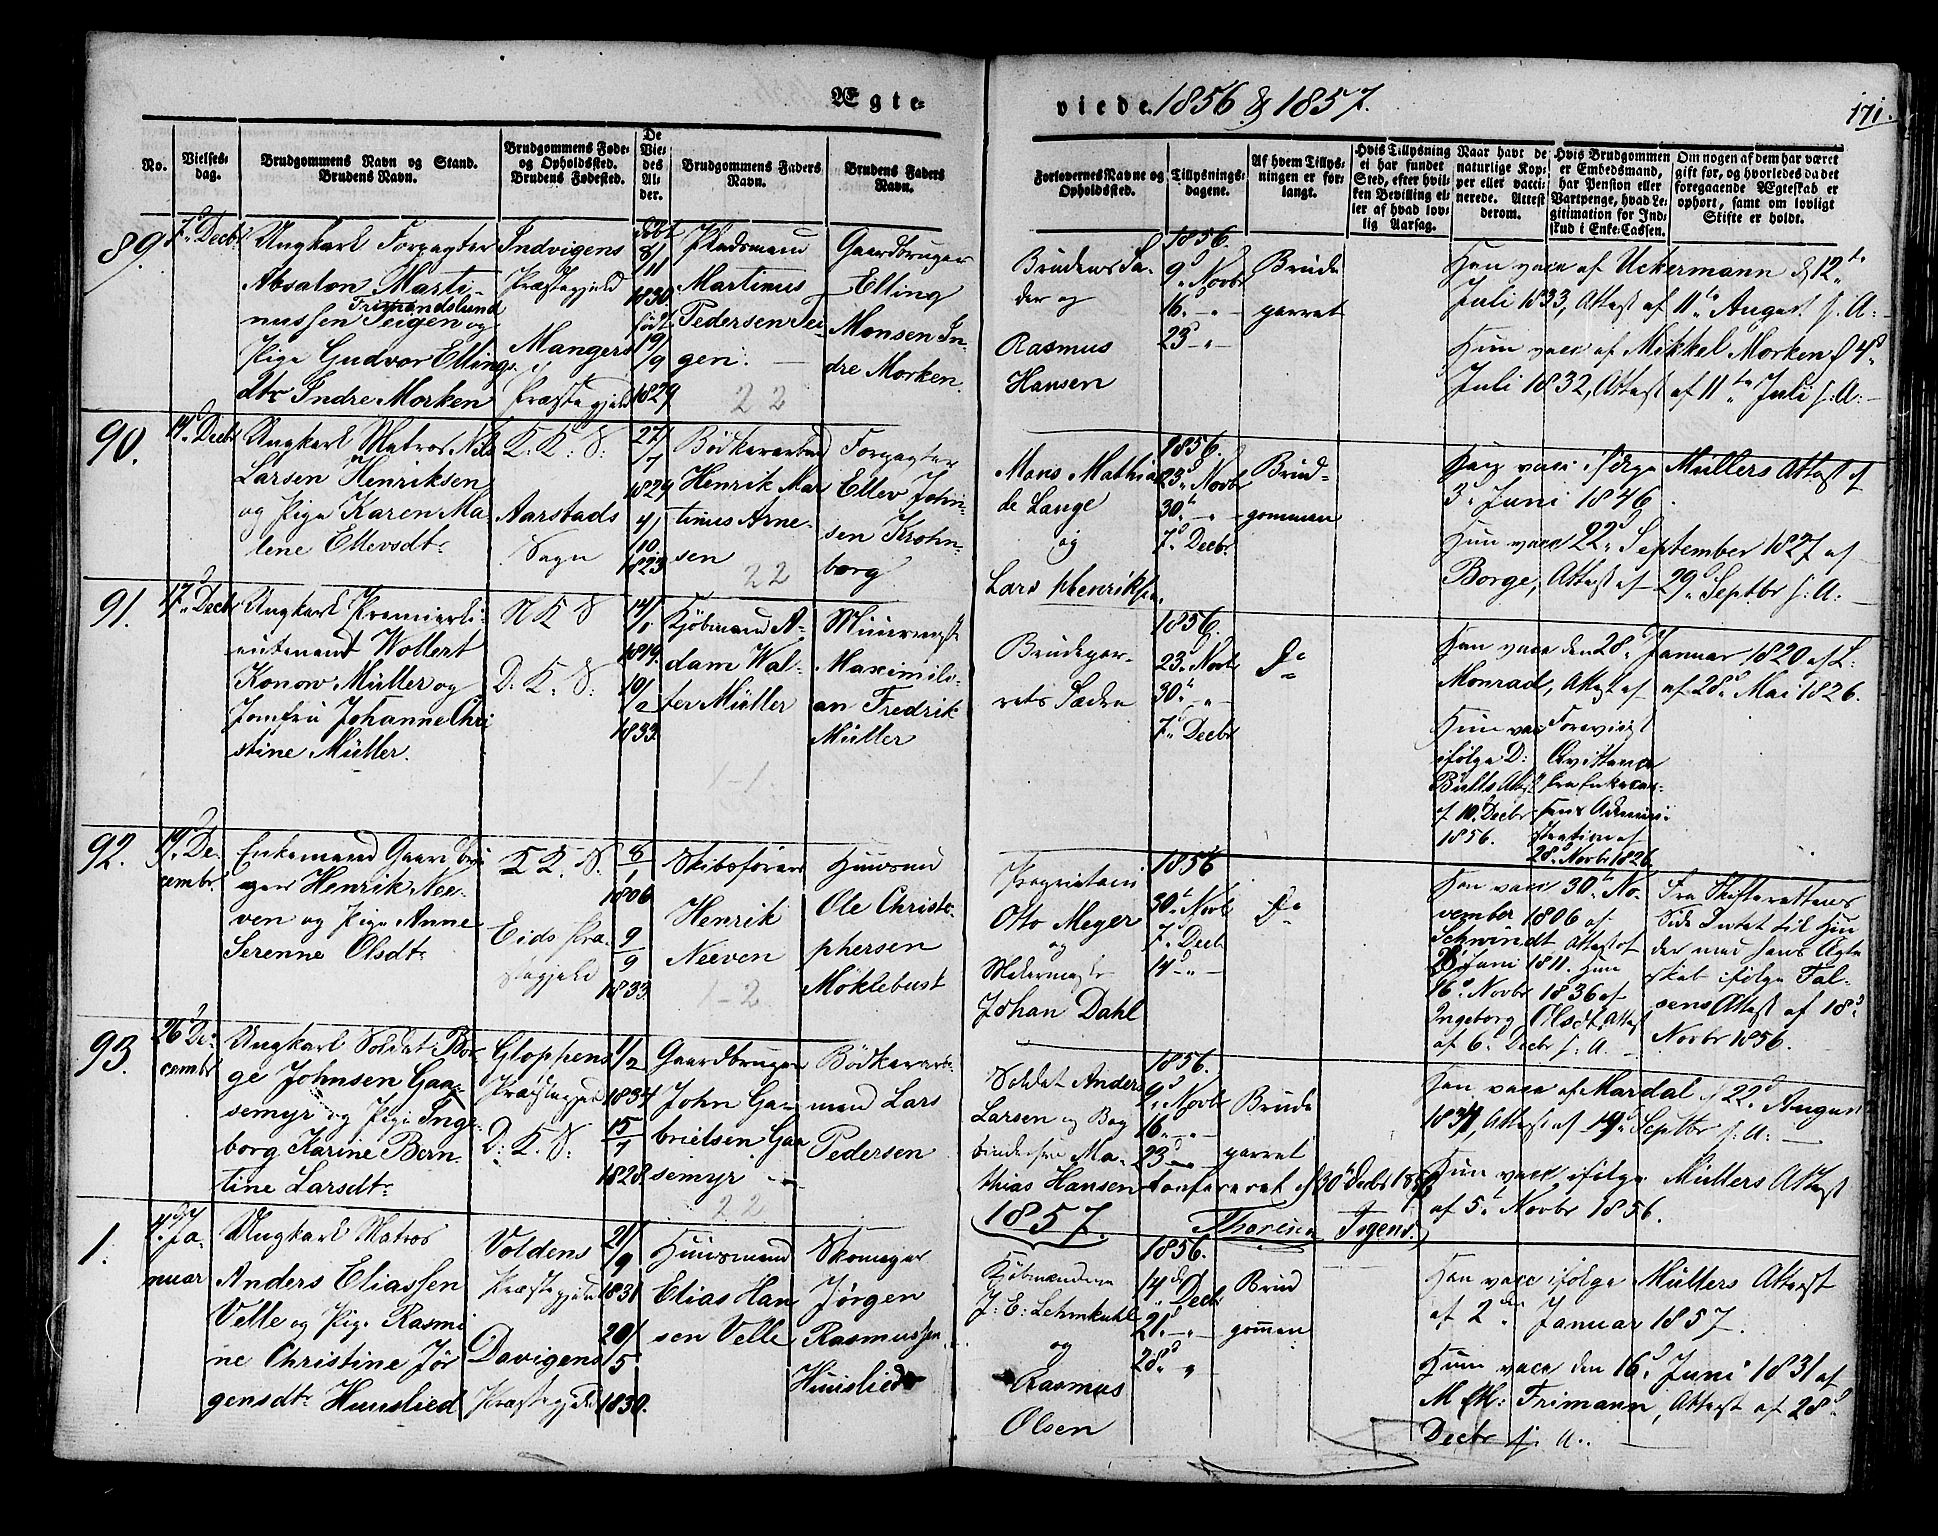 Ægte-
viede 1856 & 1857.
171.
No.
Vielses-
dag.
Brudgommens Navn og Stand.
Brudens Navn.
Brudgommens Føde-
og Opholdssted.
Brudens Fødested.
De
Vie-
des
Al-
der.
Brudgommens Faders
Navn.
Brudens Faders
Navn.
Forlovernes Navne og
Opholdssted.
Tillysnings-
dagene.
Af hvem Tillys-
ningen er for-
langt.
Hvis Tillysning
ei har fundet
Sted, efter hvil-
ken Bevilling el-
ler af hvad lov-
lig Aarsag.
Naar havt de
naturlige Kop-
per eller vacci-
nerede. Attest
derom.
Hvis Brudgommen
er Embedsmand,
har Pension eller
Vartpenge, hvad Le-
gitimation for Ind-
skud i Enke-Cassen.
Om nogen af dem har været
gift før, og hvorledes da det
foregaaende Ægteskab er
ophørt, samt om lovligt
Skifte er holdt.
89.
7d Decbr
Ungkarl Forpagter
Absalon Marti-
Frimandslund
nussen Teigen og
Pige Gudvor Ellings-
dtr Indre Morken
Indvigens
Præstegjeld
Mangers
Præstegjeld
født
8/11
1830.
født
19/9
1829
Pladsmand
Martinus
Pedersen Tei-
gen.
22
Gaardbruger
Elling
Monsen In-
dre Morken.
Brudens Fa-
der og
Rasmus
Hansen
1856.
9d Novbr
16. - " -
23 - " -
Brude
parret
Han vacc af Uckermann d 12te
Juli 1833, Attest af 11te August s. A: -
Hun vacc af Mikkel Morken d 4d
Juli 1832, Attest af 11te Juli s: A: -
90.
14d Decbr
Ungkarl Matros Nils
Larsen Henriksen
og Pige Karen Ma-
lene Ellevsdtr
K. K: S:
Aarstads
Sogn
27/7
1829
4/10
1823
Bødkerarbmd
Henrik Mar
tinus Arne-
sen
22
Forpagter
Ellev John-
sen Krohn-
borg
Mons Mathias
de Lange
og
Lars Henriksen.
1856.
23d Novbr
30. - " -
7d Decbr
Brud-
gommen
Han vacc ifølge Müllers Attest af
3d Juni 1846.
Hun vacc 22d September 1827 af
Borge, Attest af 29d Septbr s: A: -
91.
17d Decbr
Ungkarl Premierli-
eutenant Wollert
Konow Müller og
Jomfru Johanne Chri
stine Müller.
N K S
D: K: S:
14/1
1819.
10/2
1833.
Kjøbmand A-
dam Wal-
ter Müller
1-1
Muurmester
Maximili-
an Fredrik
Müller
Brudepar-
rets Fædre
1856.
23d Novbr
30. - " -
7d Decbr
Do
Han vacc den 28d Januar 1820 af L:
Monrad, Attest af 28d Mai 1826.
Hun vacc
ifølge D:
Bulls Attest
af 10d Decbr
1856.
Forevist
Qvittance
fra Enkecas-
sens Admini-
stration af
28d Novbr 1826.
92.
19d De-
cembr
Enkemand Gaardbru
ger Henrik Nee-
ven og Pige Anne
Serenne Olsdtr
K K. S.
Eids Præ-
stegjeld
8/1
1806
9/9
1833.
Skibsfører
Henrik
Neeven
1-2
Huusmd
Ole Christo-
phersen
Möklebust
Proprietair
Otto Meyer
og
Malermester
Johan Dahl
1856
30d Novbr
7d Decb
14 - " -
Do
Han vacc 30d No-
vember 1806 af
Schwindt Attest af
28d Juni 1811. Hun
16d Novbr 1836 af
Ingeborg Olsdtr, Attest
af 6d Decbr s: A. -
Fra Skifterettens
Side Intet til Hin
der mod hans Ægte
skab ifølge Fal-
sens Attest af 18d
Novbr 1856.
93.
26d De-
cembr
Ungkarl Soldat Bør
ge Johnsen Gaa-
semyr og Pige Inge
borg Karine Bern-
tine Larsdtr
Gloppens
Præstegjeld
D: K. S:
11/2
1834
15/7
1823.
Gaardbruger
John Ga
brielsen Gaa
semyr -
22
Bødkerarb-
mand Lars
Pedersen
Soldat Anders
Larsen og Bog
bindersvend Ma-
thias Hansen
1856.
9d Novbr
16. - " -
23d - " -
Brude
parret
Confereret d 30te Decbr 1856
Thorina Togens.
Han vacc af Mardal d 22d August
1834, Attest af 14d Septbr s: A: -
Hun vacc ifølge Müllers Attest
af 5d Novbr 1856.
1857.
1.
4d Ja-
nuar
Ungkarl Matros
Anders Eliassen
Velle og Pige Rasmi
ne Christine Jør
gensdtr Hunslied
Voldens
Præstegjeld
Davigens
Præstegjeld
21/9
1831
20/5
1830.
Huusmand
Elias Han
sen Velle
Skomager
Jørgen
Rasmussen
Hunslied
Kjøbmændene
J. E. Lehmkuhl
og
Rasmus
Olsen
1856.
14de Decbr
21d - " -
28d "
Brud
gommen
Han vacc ifølge Müllers Attest
af 2den Januar 1857.
Hun vacc den 16d Juni 1831 af
M. M: Frimann, Attest af 28d
Decbr s. A.